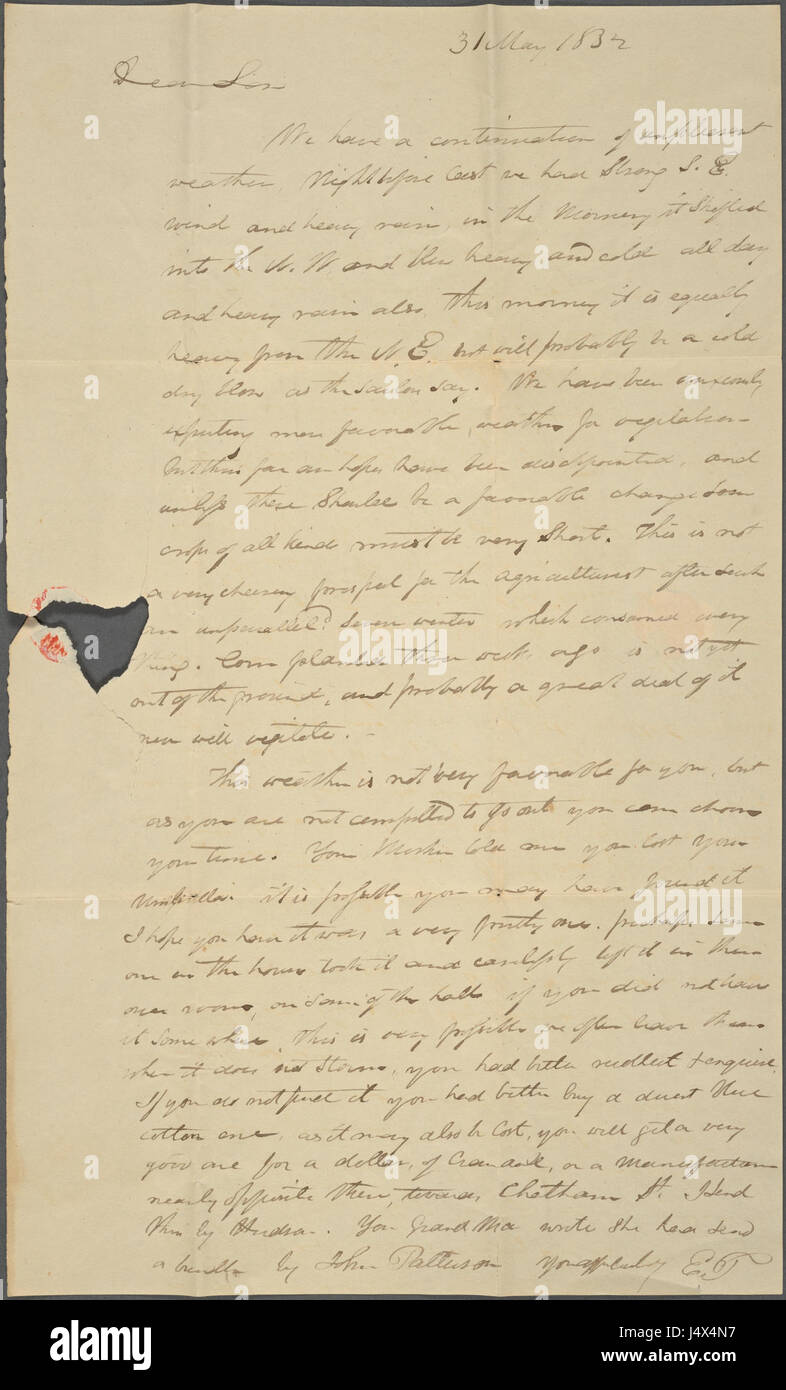 31 May 1832
Dear Son
We have a continuation of unpleasant
weather, Night before last we had Strong S. E.
wind and heavy rain, in the Morning it Shifted
into the N. W. and blew heavy and cold all day
and heavy rain also, this morning it is equally
heavy from the N. E. but will probably be a cold
dry blow as the sailors say. We have been anxiously
expecting more favorable weather for vegitation
but thus far our hopes have been disapointed, and
unless there Should be a favorable change soon
crops of all kind must be very Short. This is not
a very cheering prospect for the Agriculturist after such
an unparallel.d Sever winter which consumed every
thing. Corn planted three weeks ago is not yet
out of the ground, and probably a great deal of it
never will vegitate. -
This weather is not very favorable for you, but
as you are not compelled to go out you can choose
your time. Your Mother told me you lost your
Umbrella. it is possible you may have found it
I hope you have it was a very pretty one. perhaps some
one in the house took it and carelessly left it in their
own room, or some of the halls if you did not leave
it some where, this is very possible we often leave them
when it does not storm, you had better recollect + enquire.
If you do not find it you had better buy a decent blue
cotton one, as it may also be lost, you will get a very
good one for a dollar, of or a Manufacturer
nearly opposite there, towards Chatham St. I send
this by Hudson. Your Grand Ma wrote she had send
a bundle by John Patterson your E. T
alamy
alamy stock photo
J4X4N7
www.alamy.com